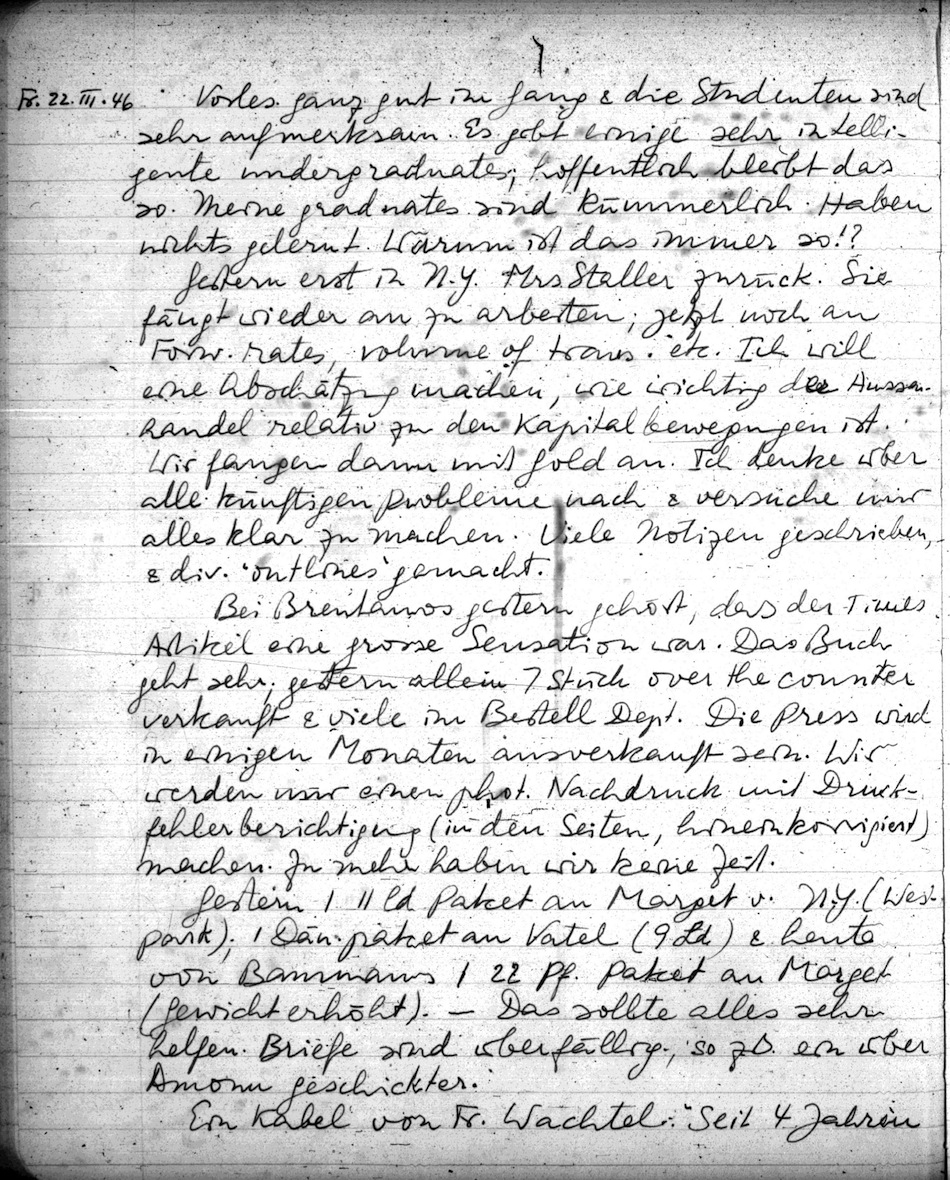 Fr. 22.III.46 Vorles. ganz gut im Gang & die Studenten sind
sehr aufmerksam. Es gibt einige sehr intelli-
gente undergraduates; hoffentlich bleibt das
so. Meine graduates sind kümmerlich. Haben
nichts gelernt. Warum ist das immer so!?
Gestern erst in N.Y. Mrs Staller zurück. Sie
fängt wieder an zu arbeiten; jetzt noch an
Forw. rates, volume of trans. etc. Ich will
eine Abschätzg machen, wie wichtig der Aussen-
handel relativ zu den Kapitalbewegungen ist.
Wir fangen dann mit Gold an. Ich denke über
alle künftigen Probleme nach & versuche mir
alles klar zu machen. Viele Notizen geschrieben,
& div. 'outlines' gemacht.
Bei Brentanos gestern gehört, dass der Times
Artikel eine grosse Sensation war. Das Buch
geht sehr; gestern allein 7 Stück over the counter
verkauft & viele im Bestell Dept. Die Press wird
in einigen Monaten ausverkauft sein. Wir
werden nur einen phot. Nachdruck mit Druck-
fehlerberichtigung (in den Seiten, hineinkorrigiert)
machen. Zu mehr haben wir keine Zeit.
Gestern 1 11 lb Paket an Marget v. N.Y. (West-
park); 1 Dän. paket an Vatel (9 Ld) & heute
von Bammanns 1 22 Pf. Paket an Marget
(Gewicht erhöht). — Das sollte alles sehr
helfen. Briefe sind überfällig, so zB. ein über
Amonn geschickter.
Ein Kabel von Fr. Wachtel: "Seit 4 Jahren